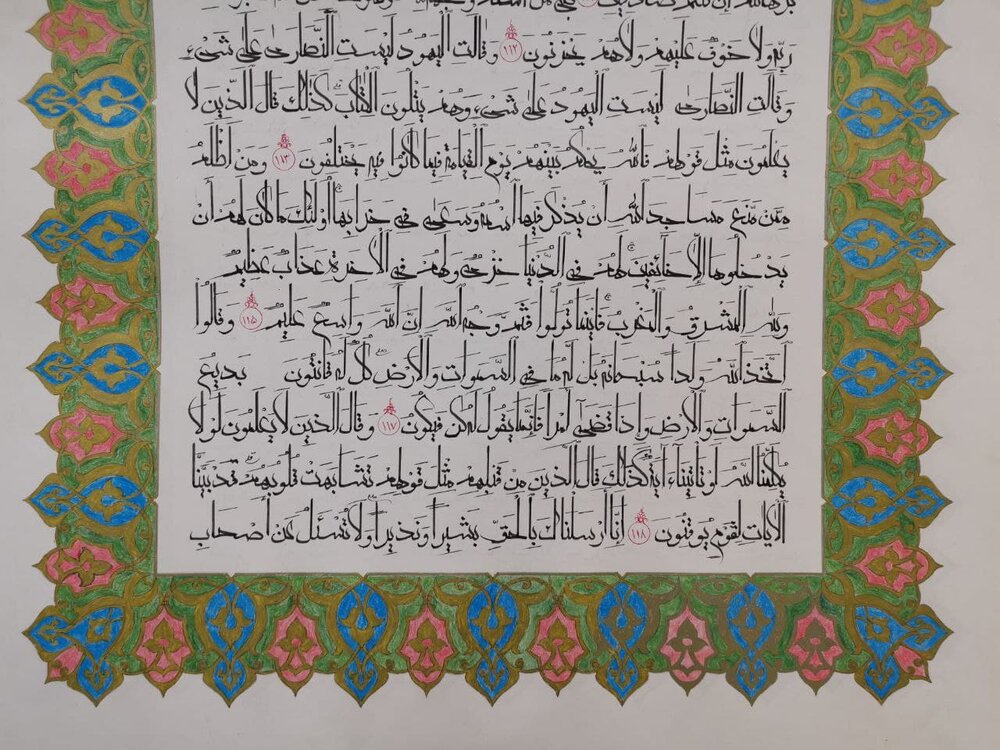 ربه ولا خوف عليهم ولا هم يحزنون ١١٢ وقالت اليهود ليست النصارى على شيء
وقالت النصارى ليست اليهود على شيء وهم يتلون الكتاب كذلك قال الذين لا
يعلمون مثل قولهم فالله يحكم بينهم يوم القيامة فيما كانوا فيه يختلفون ١١٣ ومن اظلم
ممن منع مساجد الله ان يذكر فيها اسمه وسعى في خرابها اولئك ما كان لهم أن
يدخلوها إلا خائفين لهم في الدنيا خزي ولهم في الاخرة عذاب عظيم
ولله المشرق والمغرب فاينما تولوا فثم وجه الله ان الله واسع عليم ١١٥ وقالوا
اتخذ الله ولدا سبحانه بل له ما في السموات والارض كل له قانتون بديع
السموات والارض واذا قضى امرا فانما يقول له كن فيكون ١١٧ وقال الذين لا يعلمون لولا
يكلمنا الله او تاتينا ءاية كذلك قال الذين من قبلهم مثل قولهم تشابهت قلوبهم قد بينا
الايات لقوم يوقنون ١١٨ انا ارسلناك بالحق بشيرا ونذيرا ولا تسئل عن أصحاب